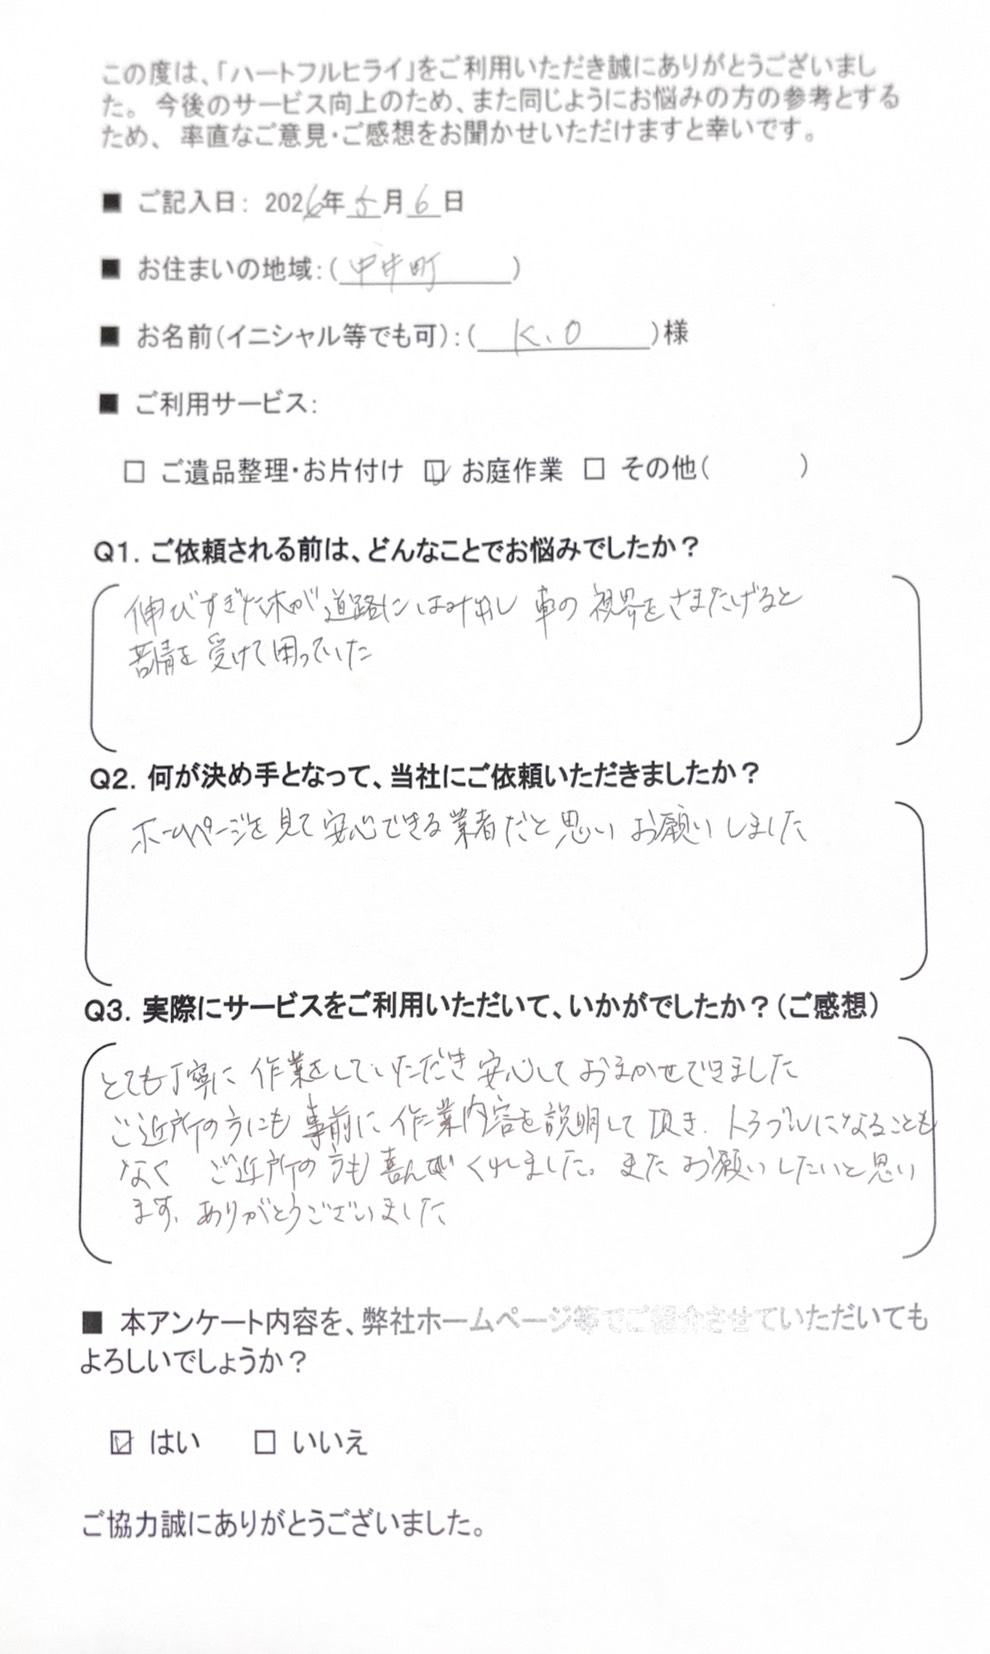 この度は、「ハートフルヒライ」をご利用いただき誠にありがとうございまし
た。 今後のサービス向上のため、また同じようにお悩みの方の参考とする
ため、 率直なご意見・ご感想をお聞かせいただけますと幸いです。
■ ご記入日： 2026年 5月 6日
■ お住まいの地域：( 中井町 )
■ お名前（イニシャル等でも可）：( K、O )様
■ ご利用サービス：
□ ご遺品整理・お片付け ☑ お庭作業 □ その他（ ）
Q1. ご依頼される前は、どんなことでお悩みでしたか？
伸びすぎた木が道路にはみ出し 車の視界をさまたげると
苦情を受けて困っていた
Q2. 何が決め手となって、当社にご依頼いただきましたか？
ホームページを見て安心できる業者だと思いお願いしました
Q3. 実際にサービスをご利用いただいて、いかがでしたか？（ご感想）
とても丁寧に作業をしていただき安心しておまかせできました
ご近所の方にも事前に作業内容を説明して頂き、トラブルになることも
なく ご近所の方も喜んでくれました。またお願いしたいと思い
ます、ありがとうございました
■ 本アンケート内容を、弊社ホームページ等でご紹介させていただいても
よろしいでしょうか？
☑ はい □ いいえ
ご協力誠にありがとうございました。